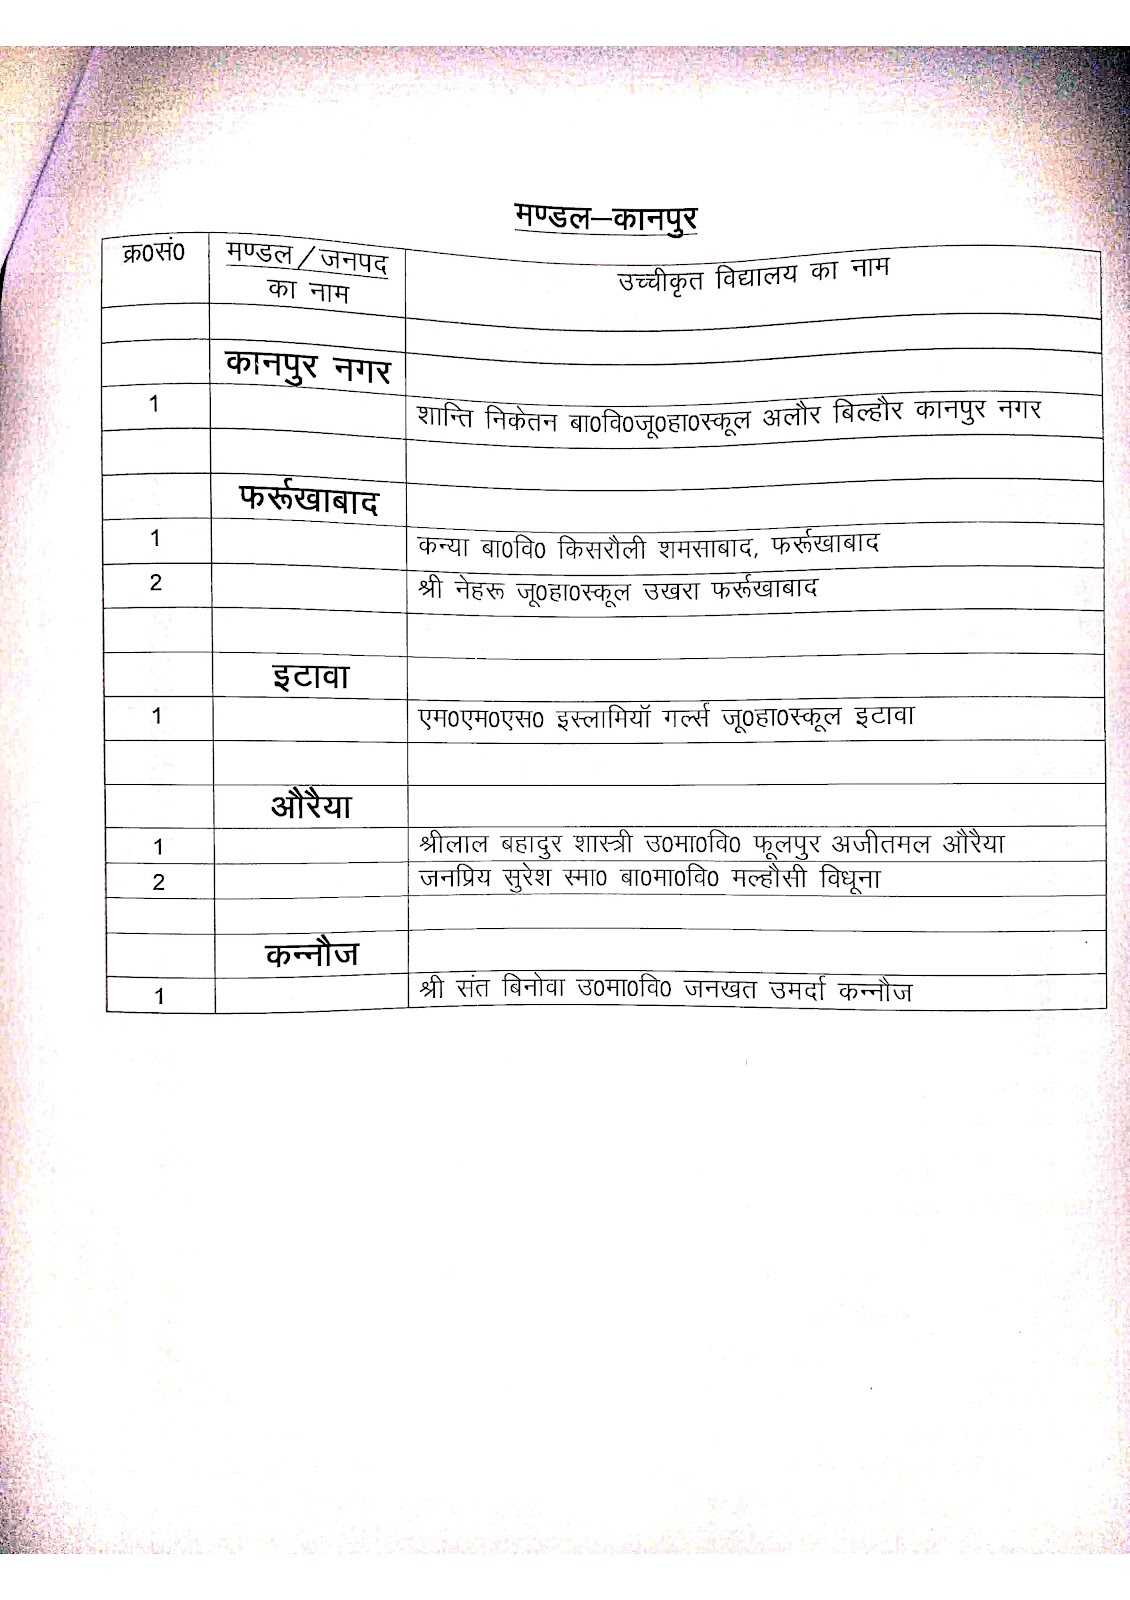 मण्डल–कानपुर
क्र0सं0 मण्डल/जनपद का नाम उच्चीकृत विद्यालय का नाम
कानपुर नगर
1 शान्ति निकेतन बा0वि0जू0हा0स्कूल अलौर बिल्हौर कानपुर नगर
फर्रूखाबाद
1 कन्या बा0वि0 किसरौली शमसाबाद, फर्रूखाबाद
2 श्री नेहरू जू0हा0स्कूल उखरा फर्रूखाबाद
इटावा
1 एम0एम0एस0 इस्लामियॉ गर्ल्स जू0हा0स्कूल इटावा
औरैया
1 श्रीलाल बहादुर शास्त्री उ0मा0वि0 फूलपुर अजीतमल औरैया
2 जनप्रिय सुरेश स्मा0 बा0मा0वि0 मल्हौसी विधूना
कन्नौज
1 श्री संत बिनोवा उ0मा0वि0 जनखत उमर्दा कन्नौज